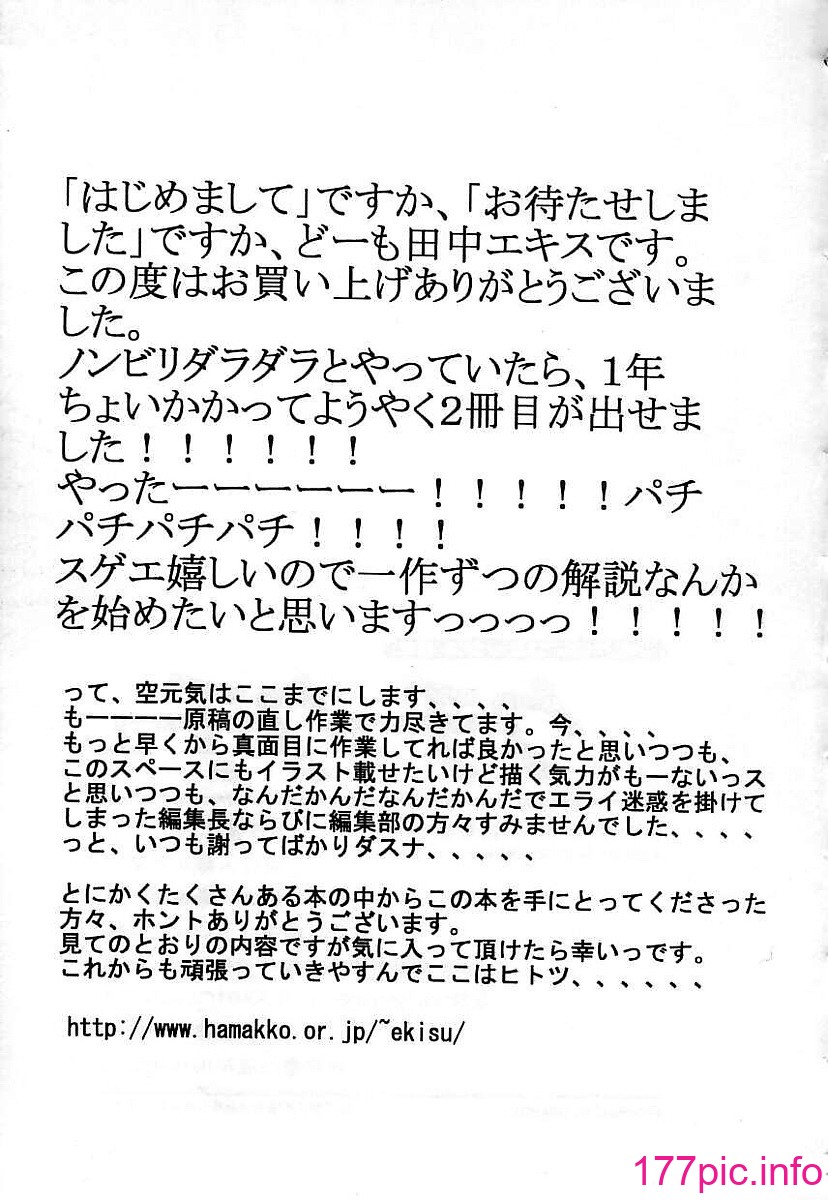 「はじめまして」ですか、「お待たせしま
した」ですか、どーも田中エキスです。
この度はお買い上げありがとうございま
した。
ノンビリダラダラとやっていたら、1年
ちょいかかってようやく2冊目が出せま
した！！！！！！
やったーーーーーー！！！！！パチ
パチパチパチ！！！！
スゲエ嬉しいので一作ずつの解説なんか
を始めたいと思いますっっっっ！！！！！
って、空元気はここまでにします、、、、
もーーーー原稿の直し作業で力尽きてます。今、、、、
もっと早くから真面目に作業してれば良かったと思いつつも、
このスペースにもイラスト載せたいけど描く気力がもーないっス
と思いつつも、なんだかんだなんだかんだでエライ迷惑を掛けて
しまった編集長ならびに編集部の方々すみませんでした、、、、
っと、いつも謝ってばかりダスナ、、、、、
とにかくたくさんある本の中からこの本を手にとってくださった
方々、ホントありがとうございます。
見てのとおりの内容ですが気に入って頂けたら幸いっです。
これからも頑張っていきやすんでここはヒトツ、、、、、、
http://www.hamakko.or.jp/~ekisu/
177pic.info